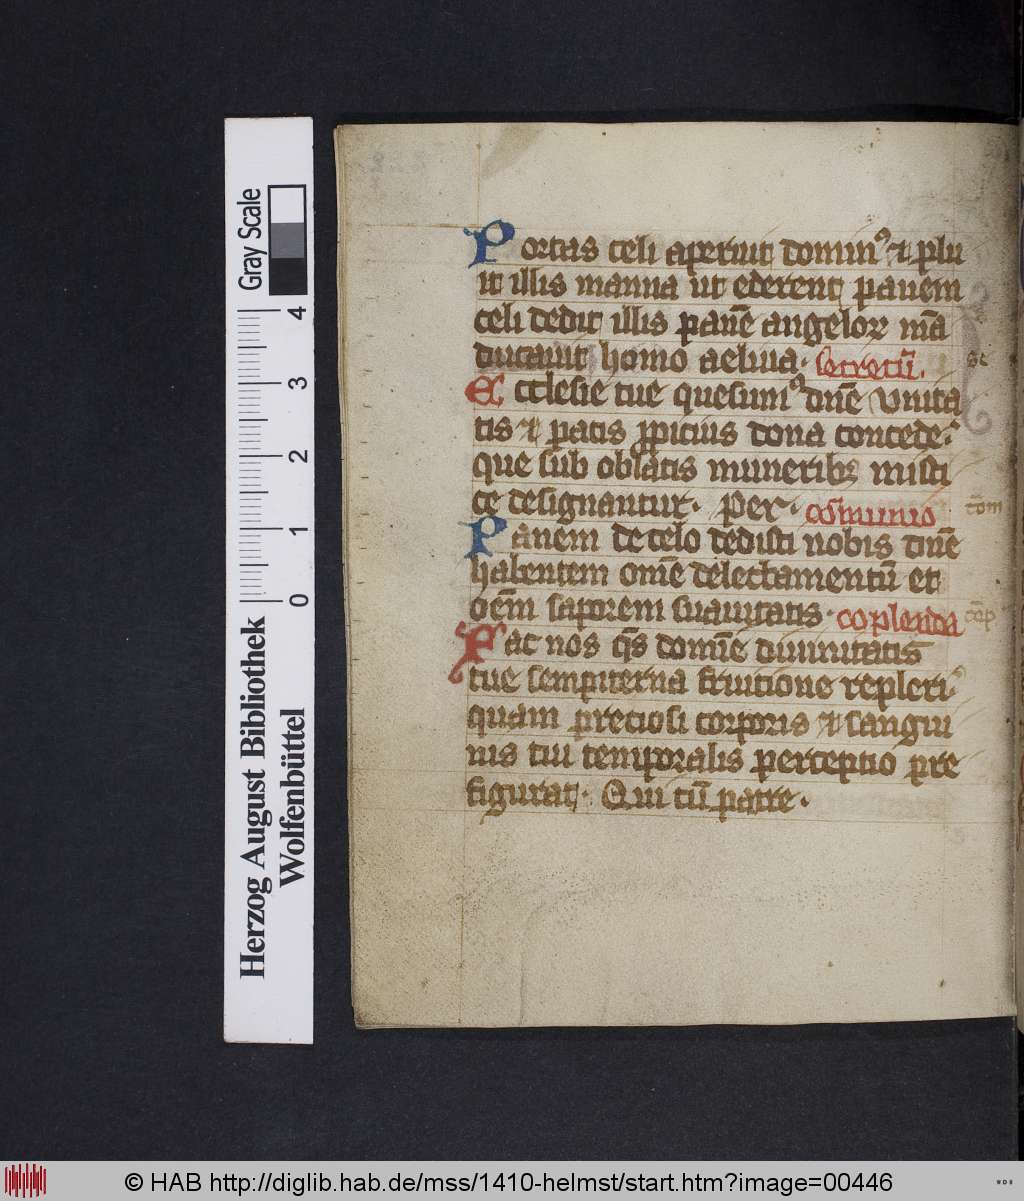 Portas celi aperuit dominꝰ ⁊ plu
it illis manna ut ederent panem
celi dedit illis panē angeloꝝ mā
ducauit homo aeliua· secretū.
Ecclesie tue quesumꝰ dn̄e vnita
tis ⁊ pacis ꝓpicius dona concede·
que sub oblatis muneribꝫ misti
ce designantur· Per· cōmunio
Panem de celo dedisti nobis dn̄e
habentem om̄e delectamentū et
oēm saporem suauitatis· cōplenda
Fac nos q̄s domīe diuinitatis
tue sempiterna fruitione repleri·
quam preciosi corporis ⁊ sangui
nis tui temporalis perceptio pre
figurat· Qui cū patre·
Herzog August Bibliothek
Wolfenbüttel
0 1 2 3 4
Gray Scale
© HAB http://diglib.hab.de/mss/1410-helmst/start.htm?image=00446